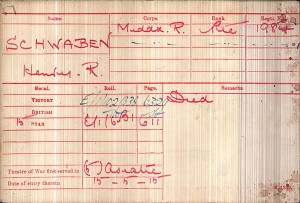 Name. Corps. Rank. Regtl. No.
SCHWABEN Middx. R. Pte 1984
Henry. R.
Medal. Roll. Page. Remarks.
VICTORY Died
BRITISH
15 STAR E/1/6 B1 611
Theatre of War first served in (5) Asiatic
Date of entry therein 15-5-15